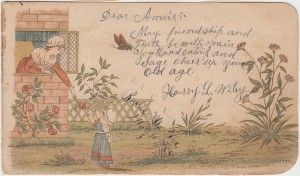 Dear Annie:
May friendship and
Faith, be with you in
youth and
Sage cheer up your
old age.
Harry L. Wiley